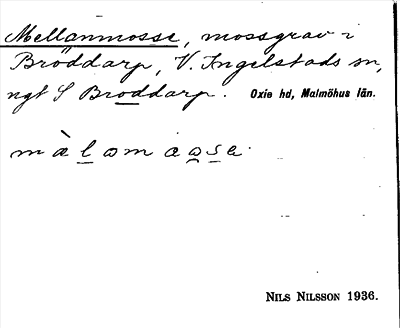 Mellanmosse, mossgrav i
Bröddarp, V. Ingelstads sn,
ngt S Broddarp. Oxie hd, Malmöhus län.
NILS NILSSON 1936.